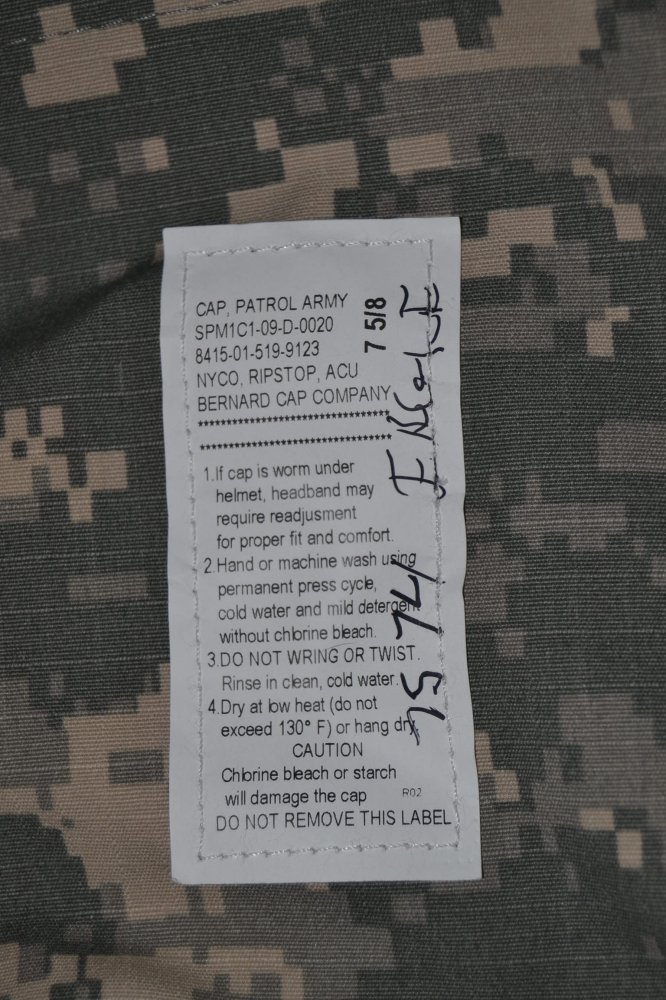 CAP, PATROL ARMY
SPM1C1-09-D-0020
8415-01-519-9123
NYCO, RIPSTOP, ACU
BERNARD CAP COMPANY
7 5/8
*********************************
*********************************
1.If cap is worm under
helmet, headband may
require readjusment
for proper fit and comfort.
2.Hand or machine wash using
permanent press cycle,
cold water and mild detergent
without chlorine bleach.
3.DO NOT WRING OR TWIST.
Rinse in clean, cold water.
4.Dry at low heat (do not
exceed 130° F) or hang dry.
CAUTION
Chlorine bleach or starch
will damage the cap
R02
DO NOT REMOVE THIS LABEL
74